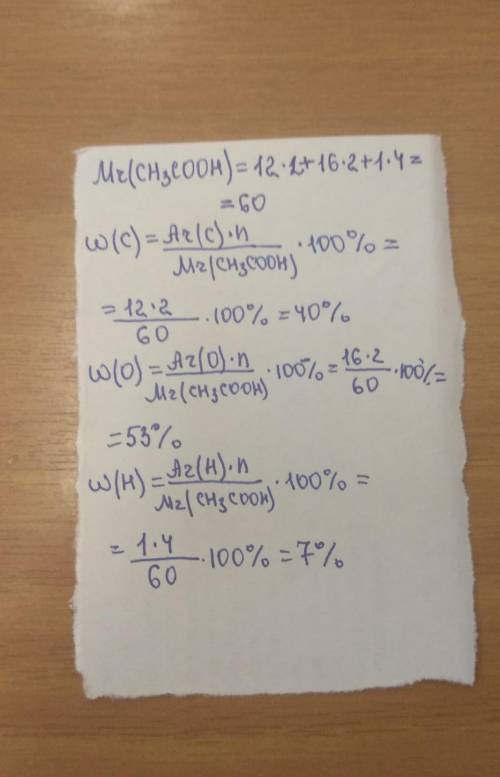 Mr(CH₃COOH)=12·2+16·2+1·4=
=60
w(C)=Ar(C)·n/Mr(CH₃COOH)·100%=
=12·2/60·100%=40%
w(O)=Ar(O)·n/Mr(CH₃COOH)·100%=16·2/60·100%=
=53%
w(H)=Ar(H)·n/Mr(CH₃COOH)·100%=
=1·4/60·100%=7%